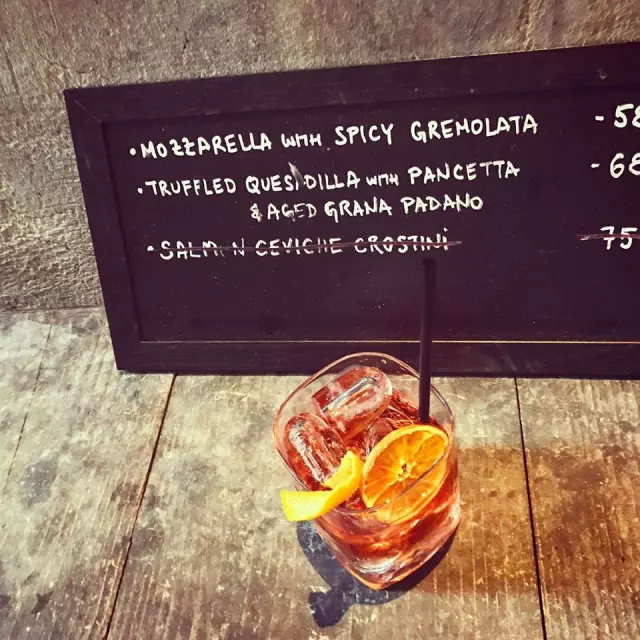 • MOZZARELLA WITH SPICY GREMOLATA - 58
• TRUFFLED QUESADILLA WITH PANCETTA - 68
& AGED GRANA PADANO
• SALMON CEVICHE CROSTINI 75